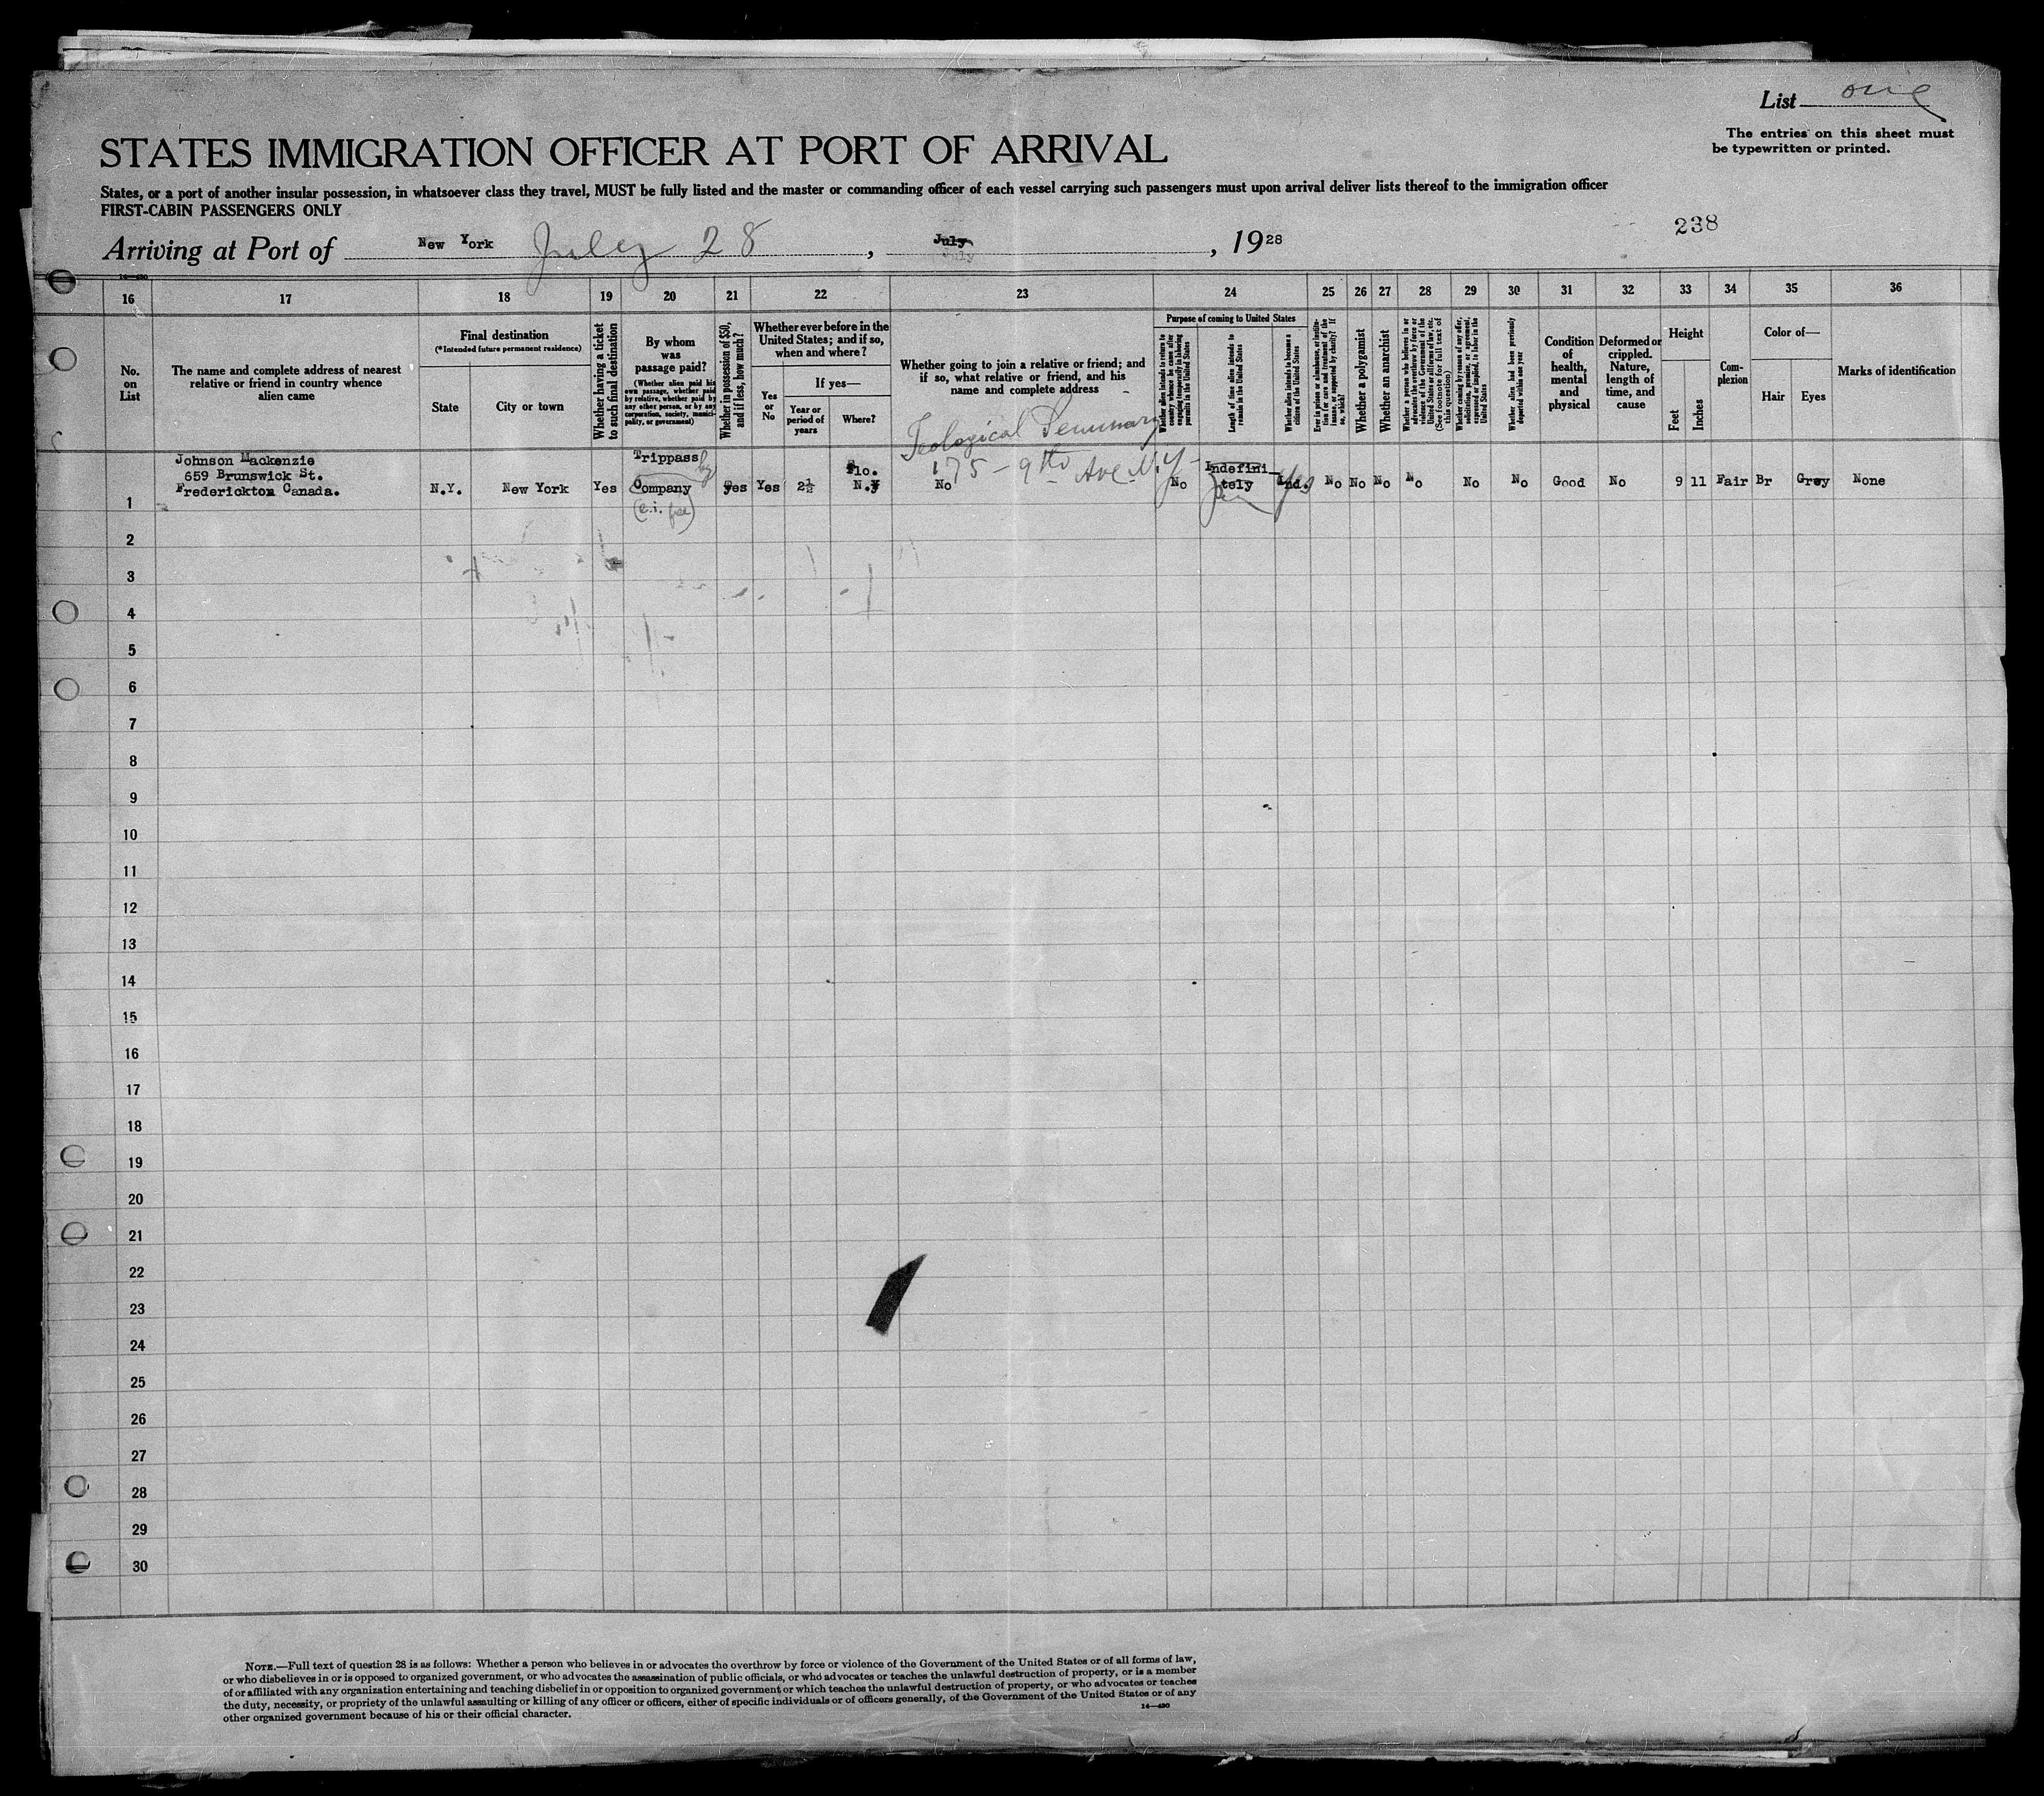 List one
The entries on this sheet must
be typewritten or printed.
STATES IMMIGRATION OFFICER AT PORT OF ARRIVAL
States, or a port of another insular possession, in whatsoever class they travel, MUST be fully listed and the master or commanding officer of each vessel carrying such passengers must upon arrival deliver lists thereof to the immigration officer
FIRST-CABIN PASSENGERS ONLY
238
Arriving at Port of New York July 28, July, 1928
14—430
16 17 18 19 20 21 22 23 24 25 26 27 28 29 30 31 32 33 34 35 36
No.
on
List
The name and complete address of nearest
relative or friend in country whence
alien came
Final destination
(*Intended future permanent residence)
State
City or town
Whether having a ticket
to such final destination
By whom
was
passage paid?
(Whether alien paid his
own passage, whether paid
by relative, whether paid by
any other person, or by any
corporation, society, munici-
pality, or government)
Whether in possession of $50,
and if less, how much?
Whether ever before in the
United States; and if so,
when and where?
Yes
or
No
If yes—
Year or
period of
years
Where?
Whether going to join a relative or friend; and
if so, what relative or friend, and his
name and complete address
Purpose of coming to United States
Whether alien intends to return to
country whence he came after
engaging temporarily in laboring
pursuits in the United States
Length of time alien intends to
remain in the United States
Whether alien intends to become a
citizen of the United States
Ever in prison or almshouse, or institu-
tion for care and treatment of the
insane, or supported by charity? If
so, which?
Whether a polygamist
Whether an anarchist
Whether a person who believes in or
advocates the overthrow by force or
violence of the Government of the
United States or all forms of law, etc.
(See footnote for full text of
this question)
Whether coming by reason of any offer,
solicitation, promise, or agreement,
expressed or implied, to labor in the
United States
Whether alien had been previously
deported within one year
Condition
of
health,
mental
and
physical
Deformed or
crippled.
Nature,
length of
time, and
cause
Height
Feet
Inches
Com-
plexion
Color of—
Hair
Eyes
Marks of identification
Teological Seminary
175 - 9th Ave N.Y-
Johnson Mackenzie
659 Brunswick St.
Frederickton Canada.
1 N.Y. New York Yes
Trippass
Company
yes Yes 2½
Flo.
N.Y
No No
Indefini_
tely
Ind. Yes No No No No No No Good No 9 11 Fair Br Grey None
2
3
4
5
6
7
8
9
10
11
12
13
14
15
16
17
18
19
20
21
22
23
24
25
26
27
28
29
30
NOTE.—Full text of question 28 is as follows: Whether a person who believes in or advocates the overthrow by force or violence of the Government of the United States or of all forms of law,
or who disbelieves in or is opposed to organized government, or who advocates the assassination of public officials, or who advocates or teaches the unlawful destruction of property, or is a member
of or affiliated with any organization entertaining and teaching disbelief in or opposition to organized government or which teaches the unlawful destruction of property, or who advocates or teaches
the duty, necessity, or propriety of the unlawful assaulting or killing of any officer or officers, either of specific individuals or of officers generally, of the Government of the United States or of any
other organized government because of his or their official character.
14—430